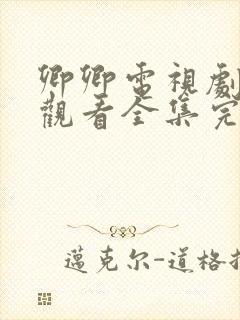 卿卿電視劇
觀看全集完
邁克尔-道格拉